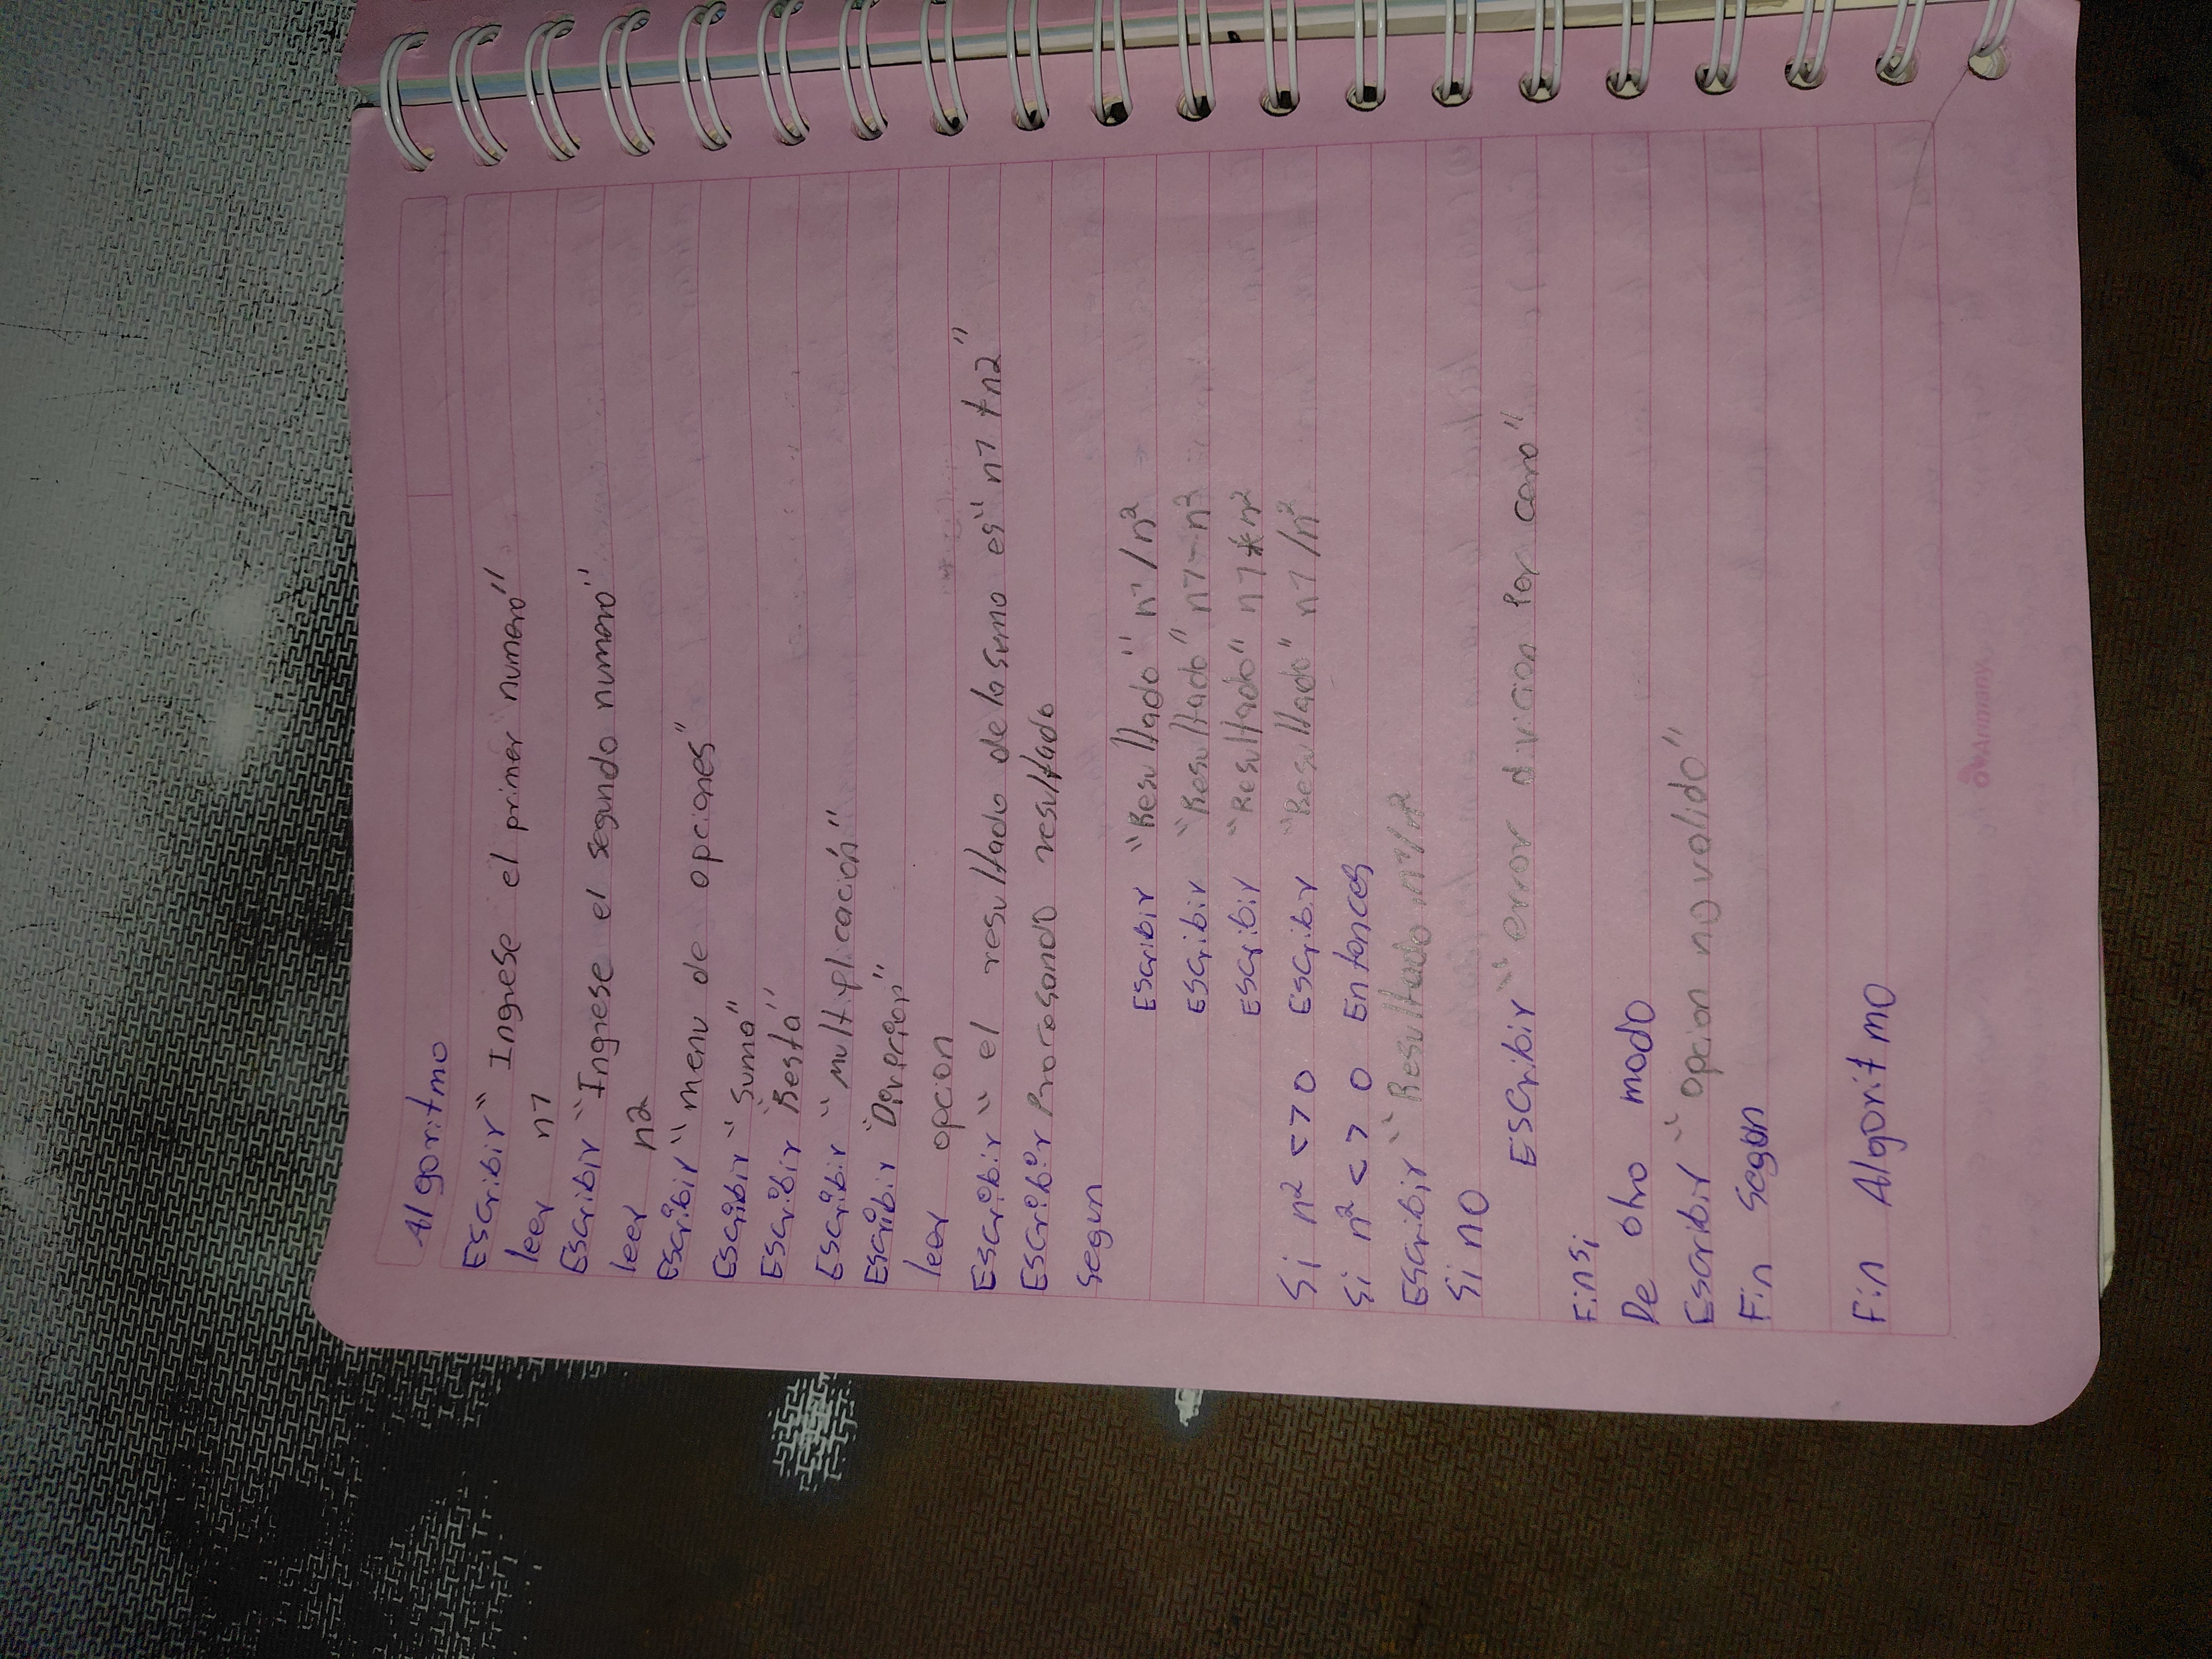 Algoritmo
Escribir " Ingrese el primer numero"
leer n1
Escribir "Ingrese el segundo numero"
leer n2
Escribir "menu de opciones"
Escribir "suma"
Escribir "Resta"
Escribir "multiplicación"
Escribir
leer opcion
Escribir " el resultado de la suma es" n1 +n2"
Escribir Procesando resultado
segun
Escribir "Resultado" n1/n2
Escribir "Resultado" n1-n2
Escribir "Resultado" n1*n2
Si n2 <> 0 Escribir "Resultado" n1/n2
Si n2 <> 0 Entonces
Escribir "Resultado n1/n2
Si no
Escribir "error divicion por cero"
Finsi
De otro modo
Escribir "opcion no valido"
Fin Segun
Fin Algoritmo